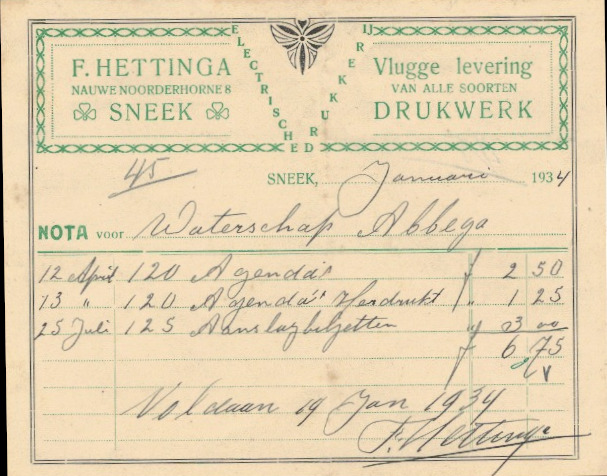 F. HETTINGA
NAUWE NOORDERHORNE 8
SNEEK
ELECTRISCHE DRUKKERIJ
Vlugge levering
VAN ALLE SOORTEN
DRUKWERK
45
SNEEK, Januari 1934
NOTA voor Waterschap Abbega
12 April 120 Agenda's f 2 50
13 " 120 Agenda's Herdrukt " 1 25
25 Juli 125 Aanslagbiljetten " 3 00
f 6,75
Voldaan 19 Jan 1934
F. Hettinga